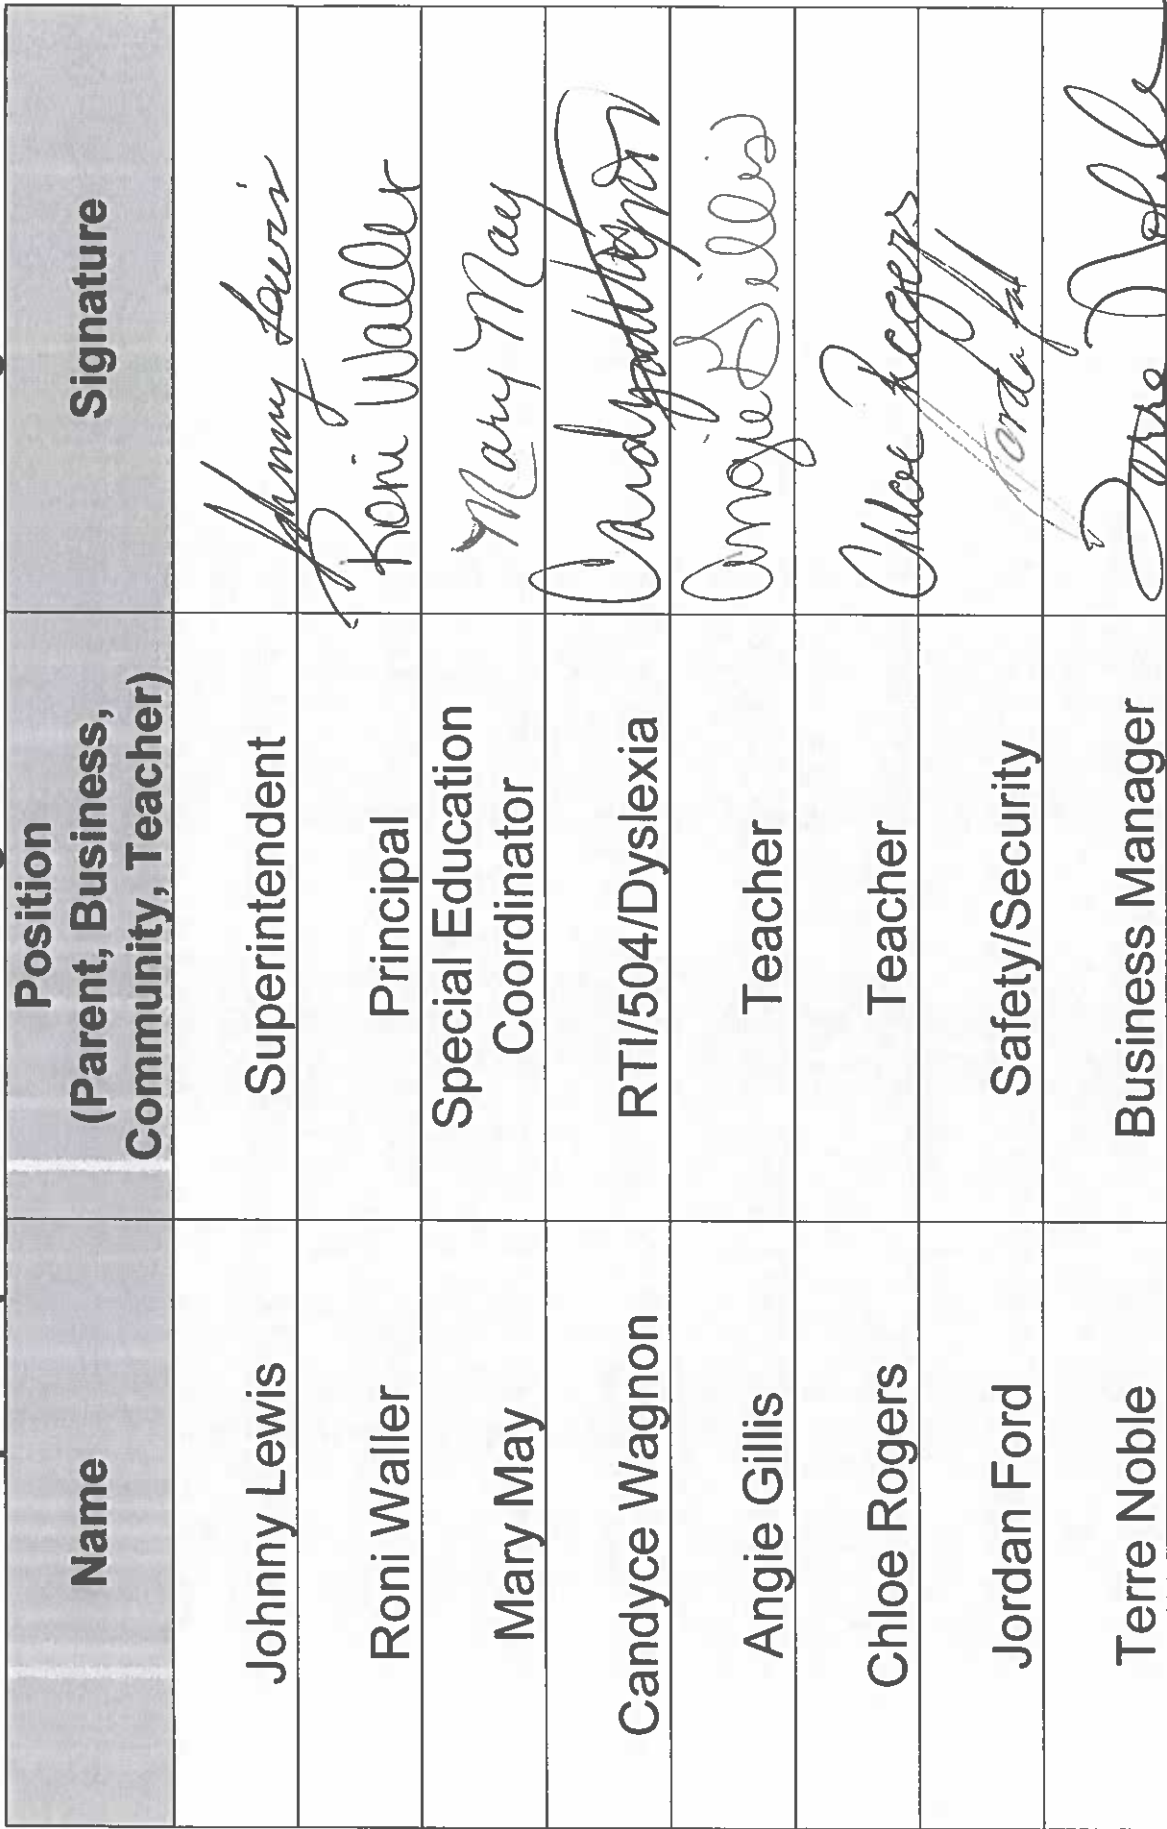 Name
Position
(Parent, Business,
Community, Teacher)
Signature
Johnny Lewis
Superintendent
Johnny Lewis
Roni Waller
Principal
Roni Waller
Mary May
Special Education
Coordinator
Mary May
Candyce Wagnon
RTI/504/Dyslexia
Candyce Wagnon
Angie Gillis
Teacher
Angie Gillis
Chloe Rogers
Teacher
Chloe Rogers
Jordan Ford
Safety/Security
Jordan Ford
Terre Noble
Business Manager
Terre Noble